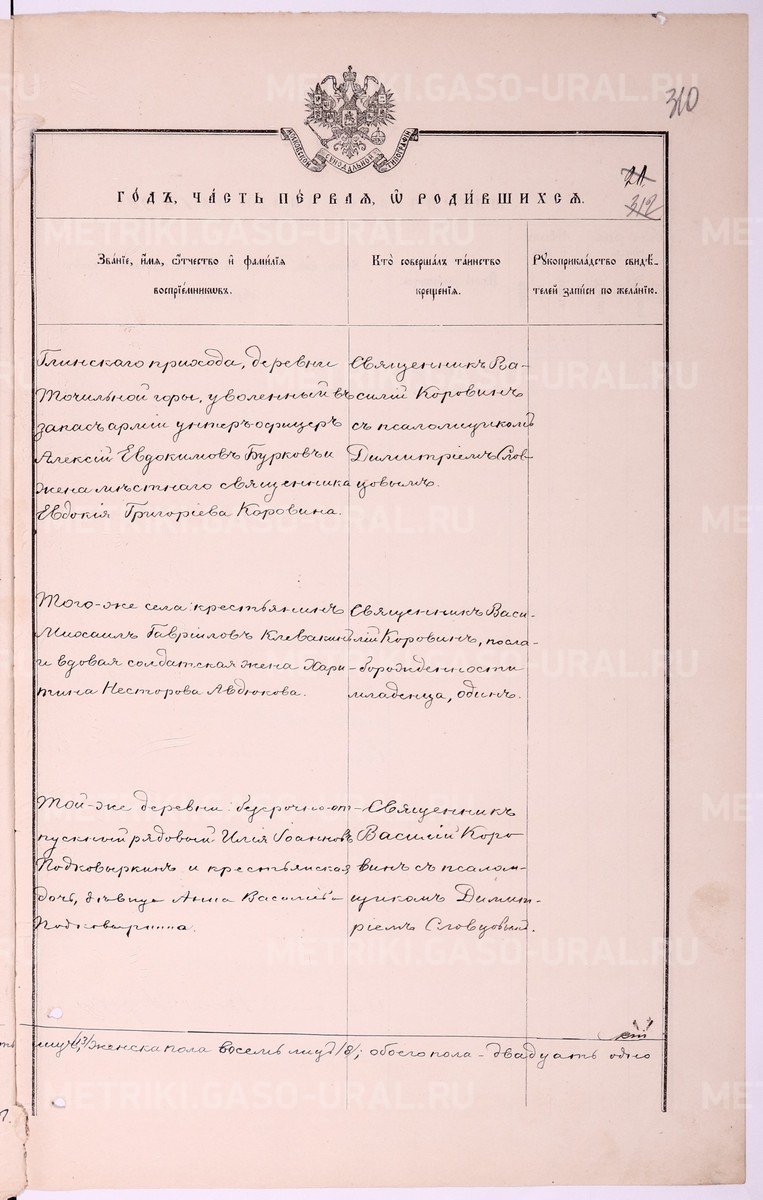 310
МОСКОВСКОЙ СѴНОДАЛЬНОЙ ТИПОГРАФІИ
21.
312
ГО́ДЪ, ЧА́СТЬ ПЕ́РВАЯ, Ѽ РОДИ́ВШИХСЯ.
Зва́нїе, и҆́мя, ѻ҆́тчество и҆ фами́лїя
воспрїе́мникѡвъ.
Кто̀ соверша́лъ та́инство
креще́нїя.
Рꙋкоприкла́дство свидѣ́-
телей за́писи по жела́нїю.
Глинскаго прихода, деревни
Точильной горы, уволенный въ
запасъ арміи унтеръ-офицеръ
Алексій Евдокимовъ Бурковъ и
жена мѣстнаго священника
Евдокія Григоріева Коровина.
Священникъ Ва-
силій Коровинъ
съ псаломщикомъ
Димитріемъ Слов-
цовымъ.
Того-же села: крестьянинъ
Михаилъ Гавріиловъ Клевакинъ
и вдовая солдатская жена Хари-
тина Несторова Авдюкова.
Священникъ Васи-
лій Коровинъ, по сла-
борожденности
младенца, одинъ.
Той-же деревни: безсрочно-от-
пускный рядовый Илія Іоанновъ
Подковыркинъ и крестьянская
дочь, дѣвица Анна Василіева
Подковыркина.
Священникъ
Василій Коро
винъ съ псалом-
щикомъ Димит-
ріемъ Словцовымъ.
лицъ /13/, женска пола восемь лицъ /8/; обоего пола - двадцать одно